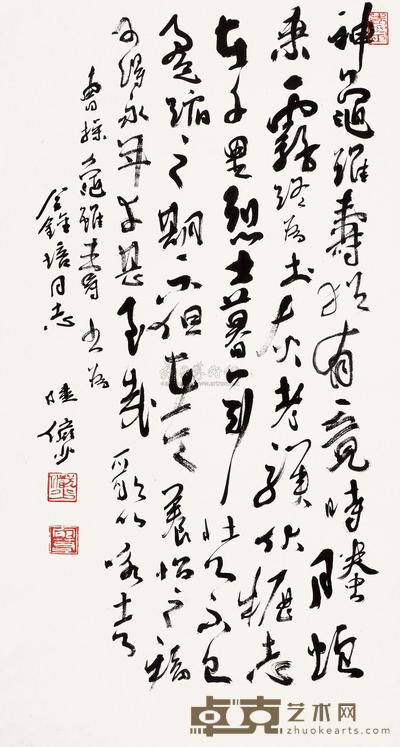 神龜雖壽猶有竟時騰蛇
乘霧終為土灰老驥伏櫪志
在千里烈士暮年壯心不已
盈縮之期不但在天養怡之福
可得永年幸甚至哉歌以咏志
曹操龜雖壽書為
金培同志 陸儼少
卓克艺术网
zhuokearts.com